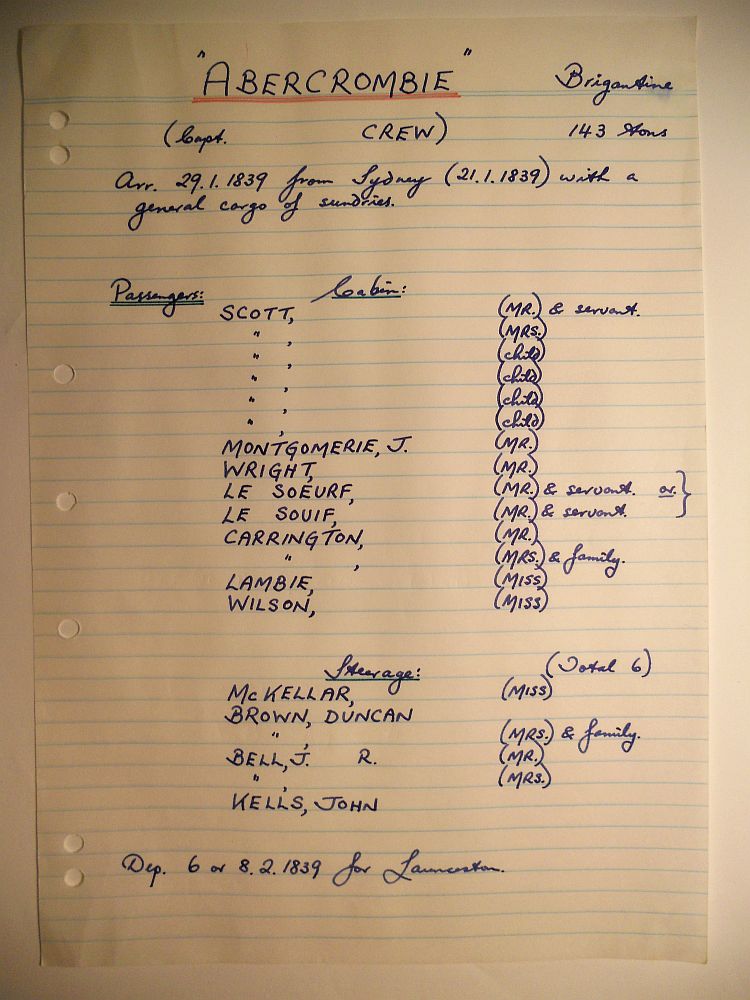 "ABERCROMBIE" Brigantine
(Capt. CREW) 143 tons
Arr. 29.1.1839 from Sydney (21.1.1839) with a
general cargo of sundries.
Passengers: Cabin:
SCOTT, (MR.) & servant.
" , (MRS.)
" , (child)
" , (child)
" , (child)
" , (child)
MONTGOMERIE, J. (MR.)
WRIGHT, (MR.)
LE SOEURF, (MR.) & servant. or }
LE SOUIF, (MR.) & servant.
CARRINGTON, (MR.)
" , (MRS.) & family.
LAMBIE, (MISS)
WILSON, (MISS)
Steerage: (Total 6)
McKELLAR, (MISS)
BROWN, DUNCAN
" , (MRS.) & family.
BELL, J. R. (MR.)
" , (MRS.)
KELLS, JOHN
Dep. 6 or 8.2.1839 for Launceston.